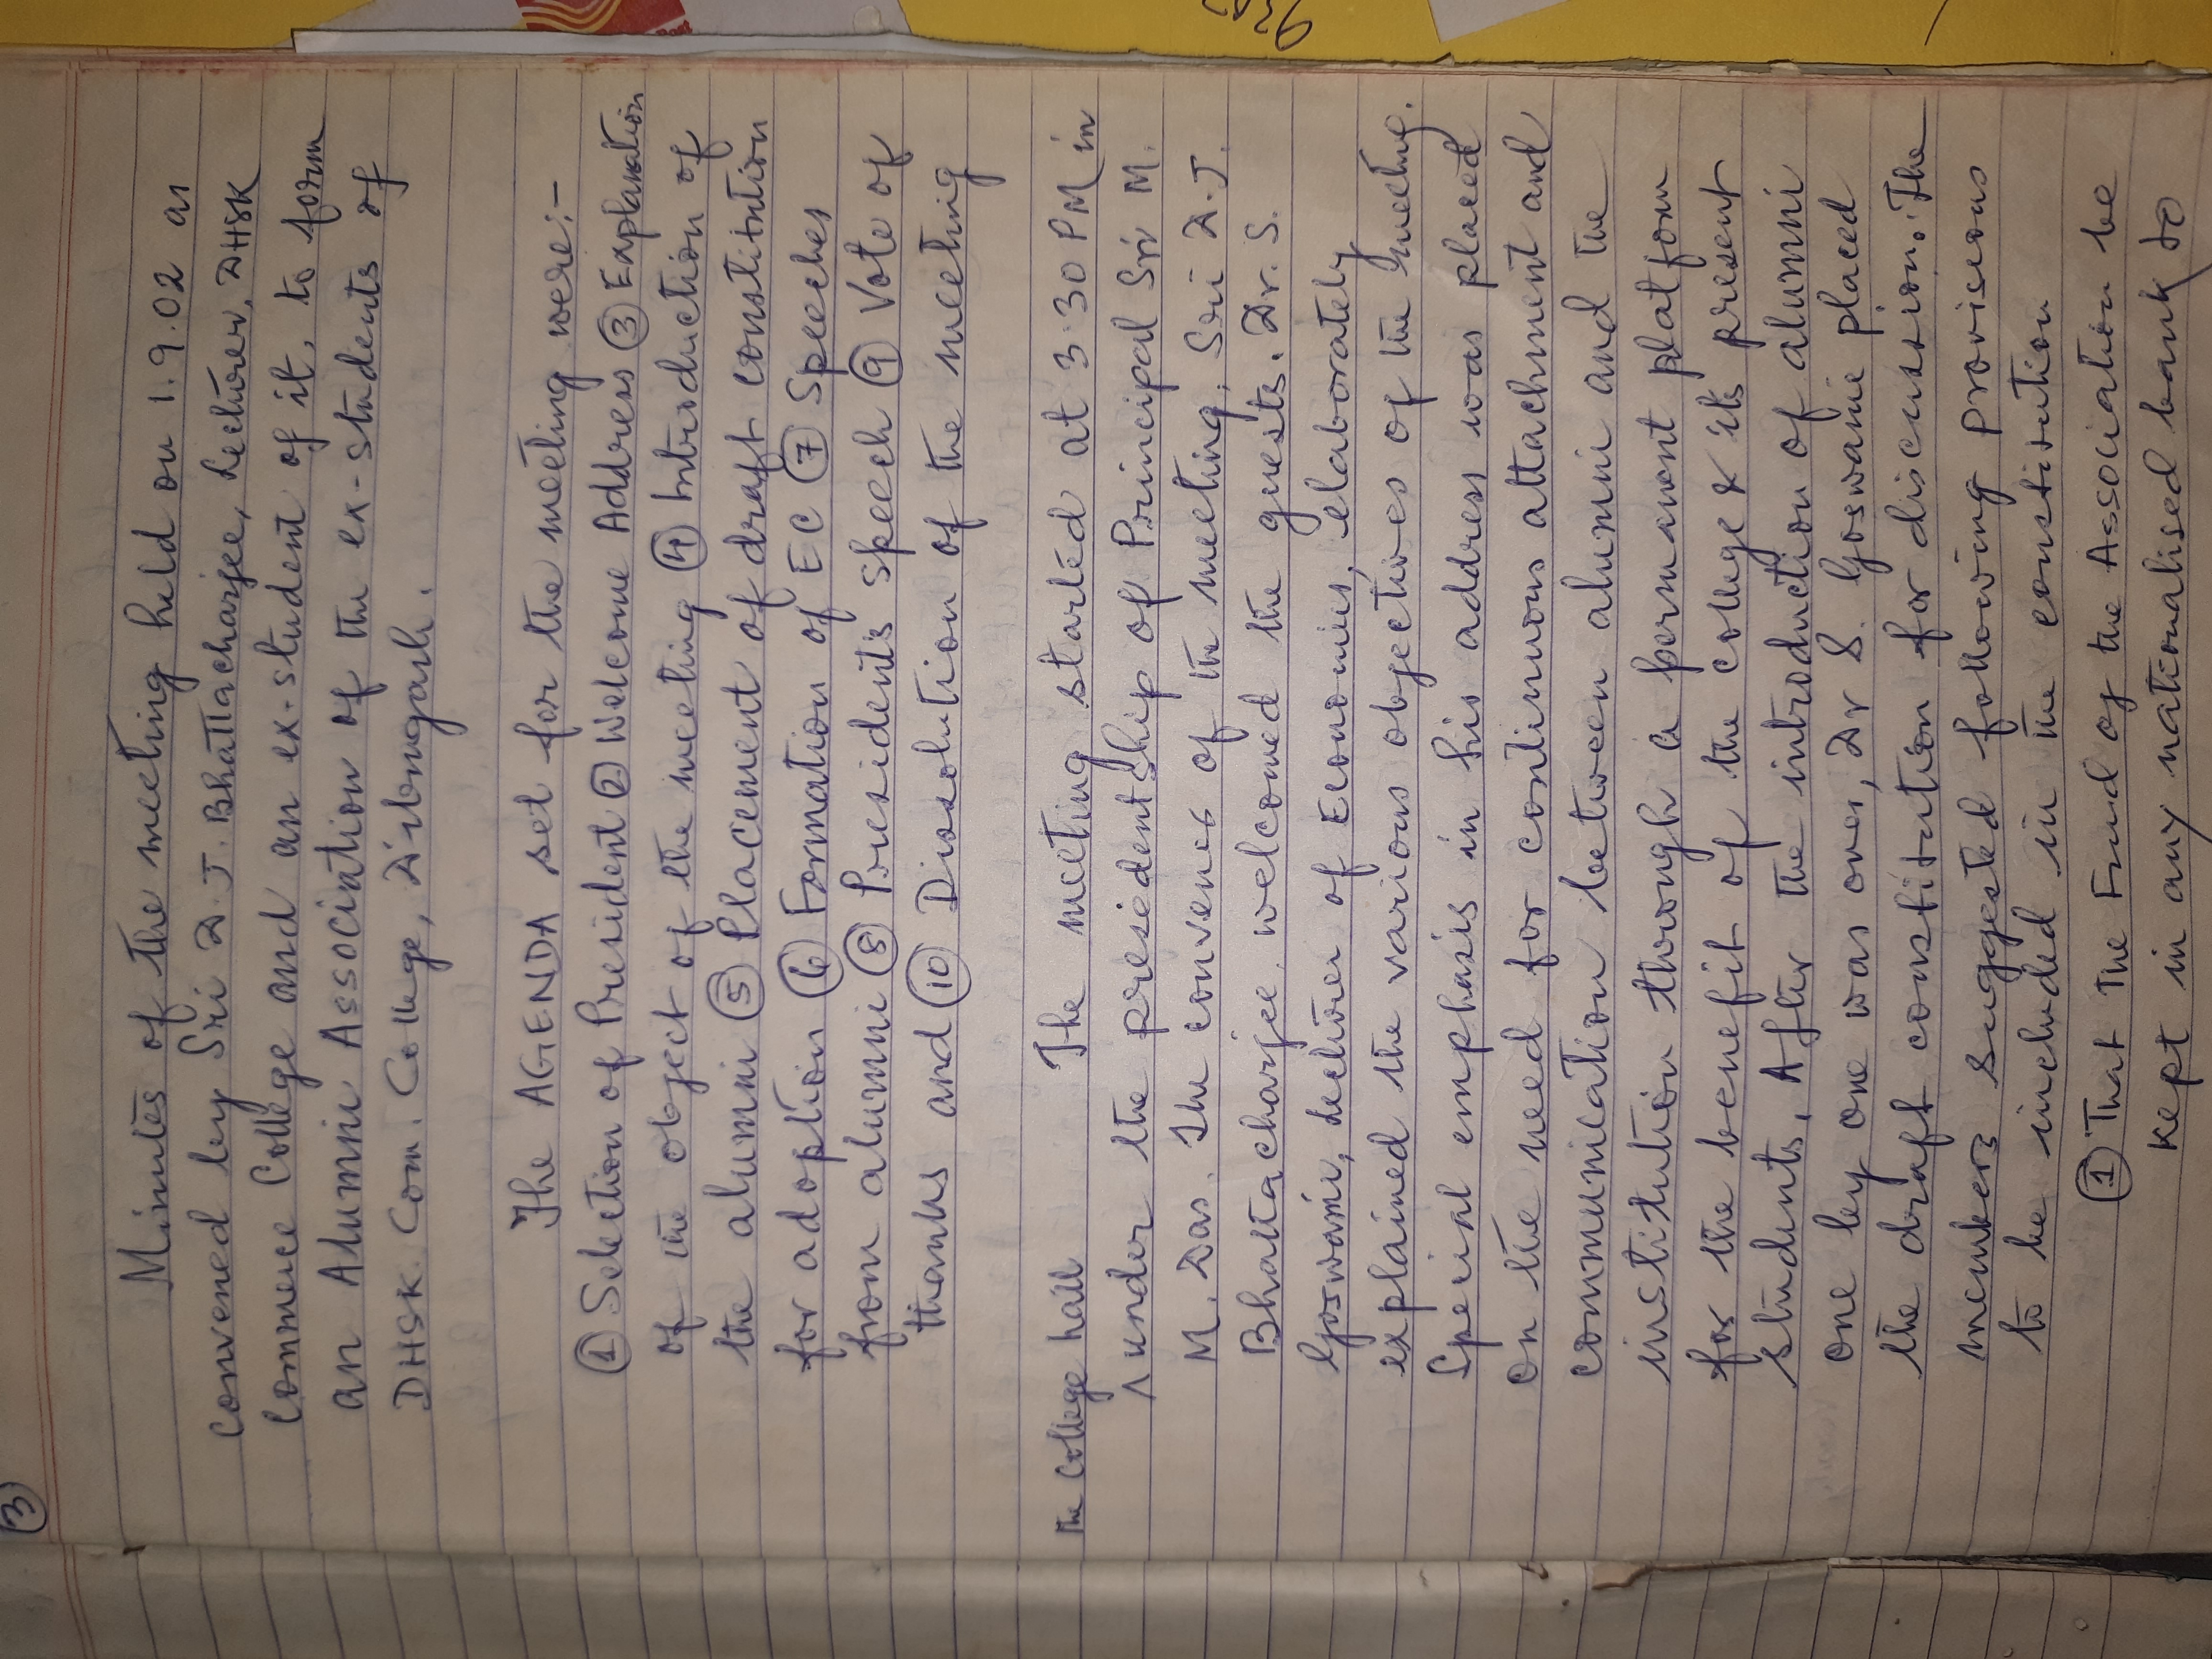 3
Minutes of the meeting held on 1.9.02 as
convened by Sri D. J. Bhattacharjee, Lecturer, DHSK
Commerce College and an ex-student of it, to form
an Alumni Association of the ex-students of
DHSK. Com. College, Dibrugarh.
The AGENDA set for the meeting were:-
① Selection of President ② Welcome Address ③ Explanation
of the object of the meeting ④ Introduction of
the alumni ⑤ Placement of draft constitution
for adoption ⑥ Formation of EC ⑦ Speeches
from alumni ⑧ President's speech ⑨ Vote of
thanks and ⑩ Dissolution of the meeting
The meeting started at 3.30 PM in
the College hall
^ under the presidentship of Principal Sri M.
M. Das. The convener of the meeting, Sri D.J.
Bhattacharjee welcomed the guests. Dr. S.
Goswami, Lecturer of Economics, elaborately
explained the various objectives of the meeting.
Special emphasis in his address was placed
on the need for continuous attachment and
communication between alumni and the
institution through a permanent platform
for the benefit of the college & its present
students. After the introduction of alumni
one by one was over, Dr S. Goswami placed
the draft constitution for discussion. The
members suggested following provisions
to be included in the constitution
① That the Fund of the Association be
kept in any nationalised bank to